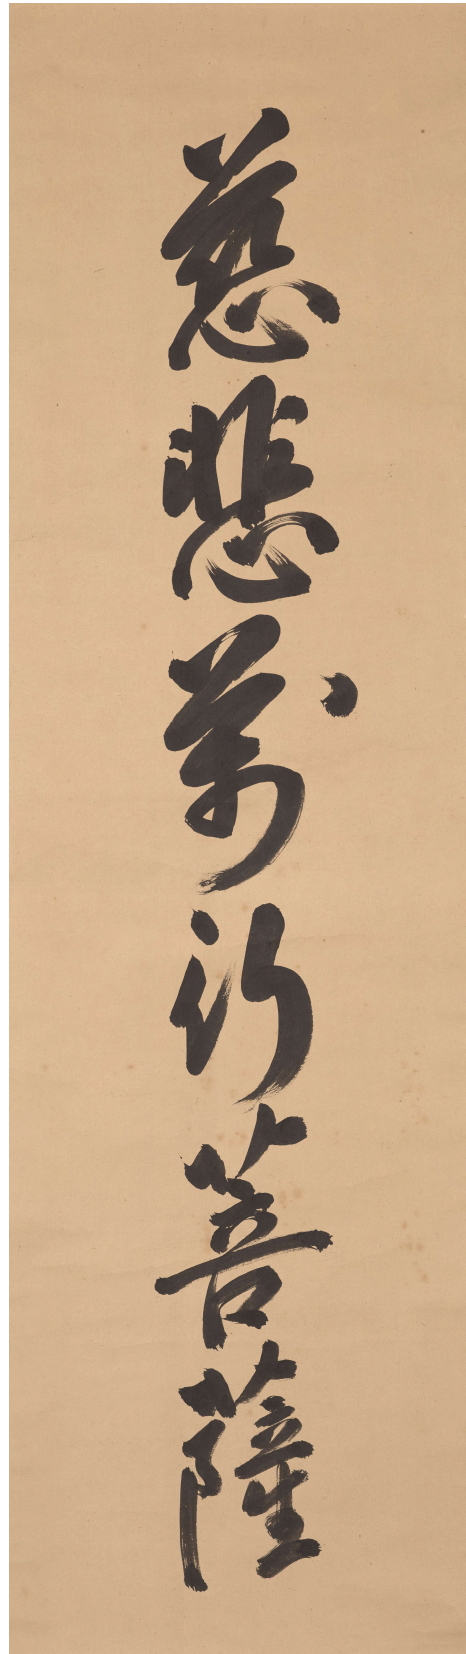 慈悲萬行菩薩